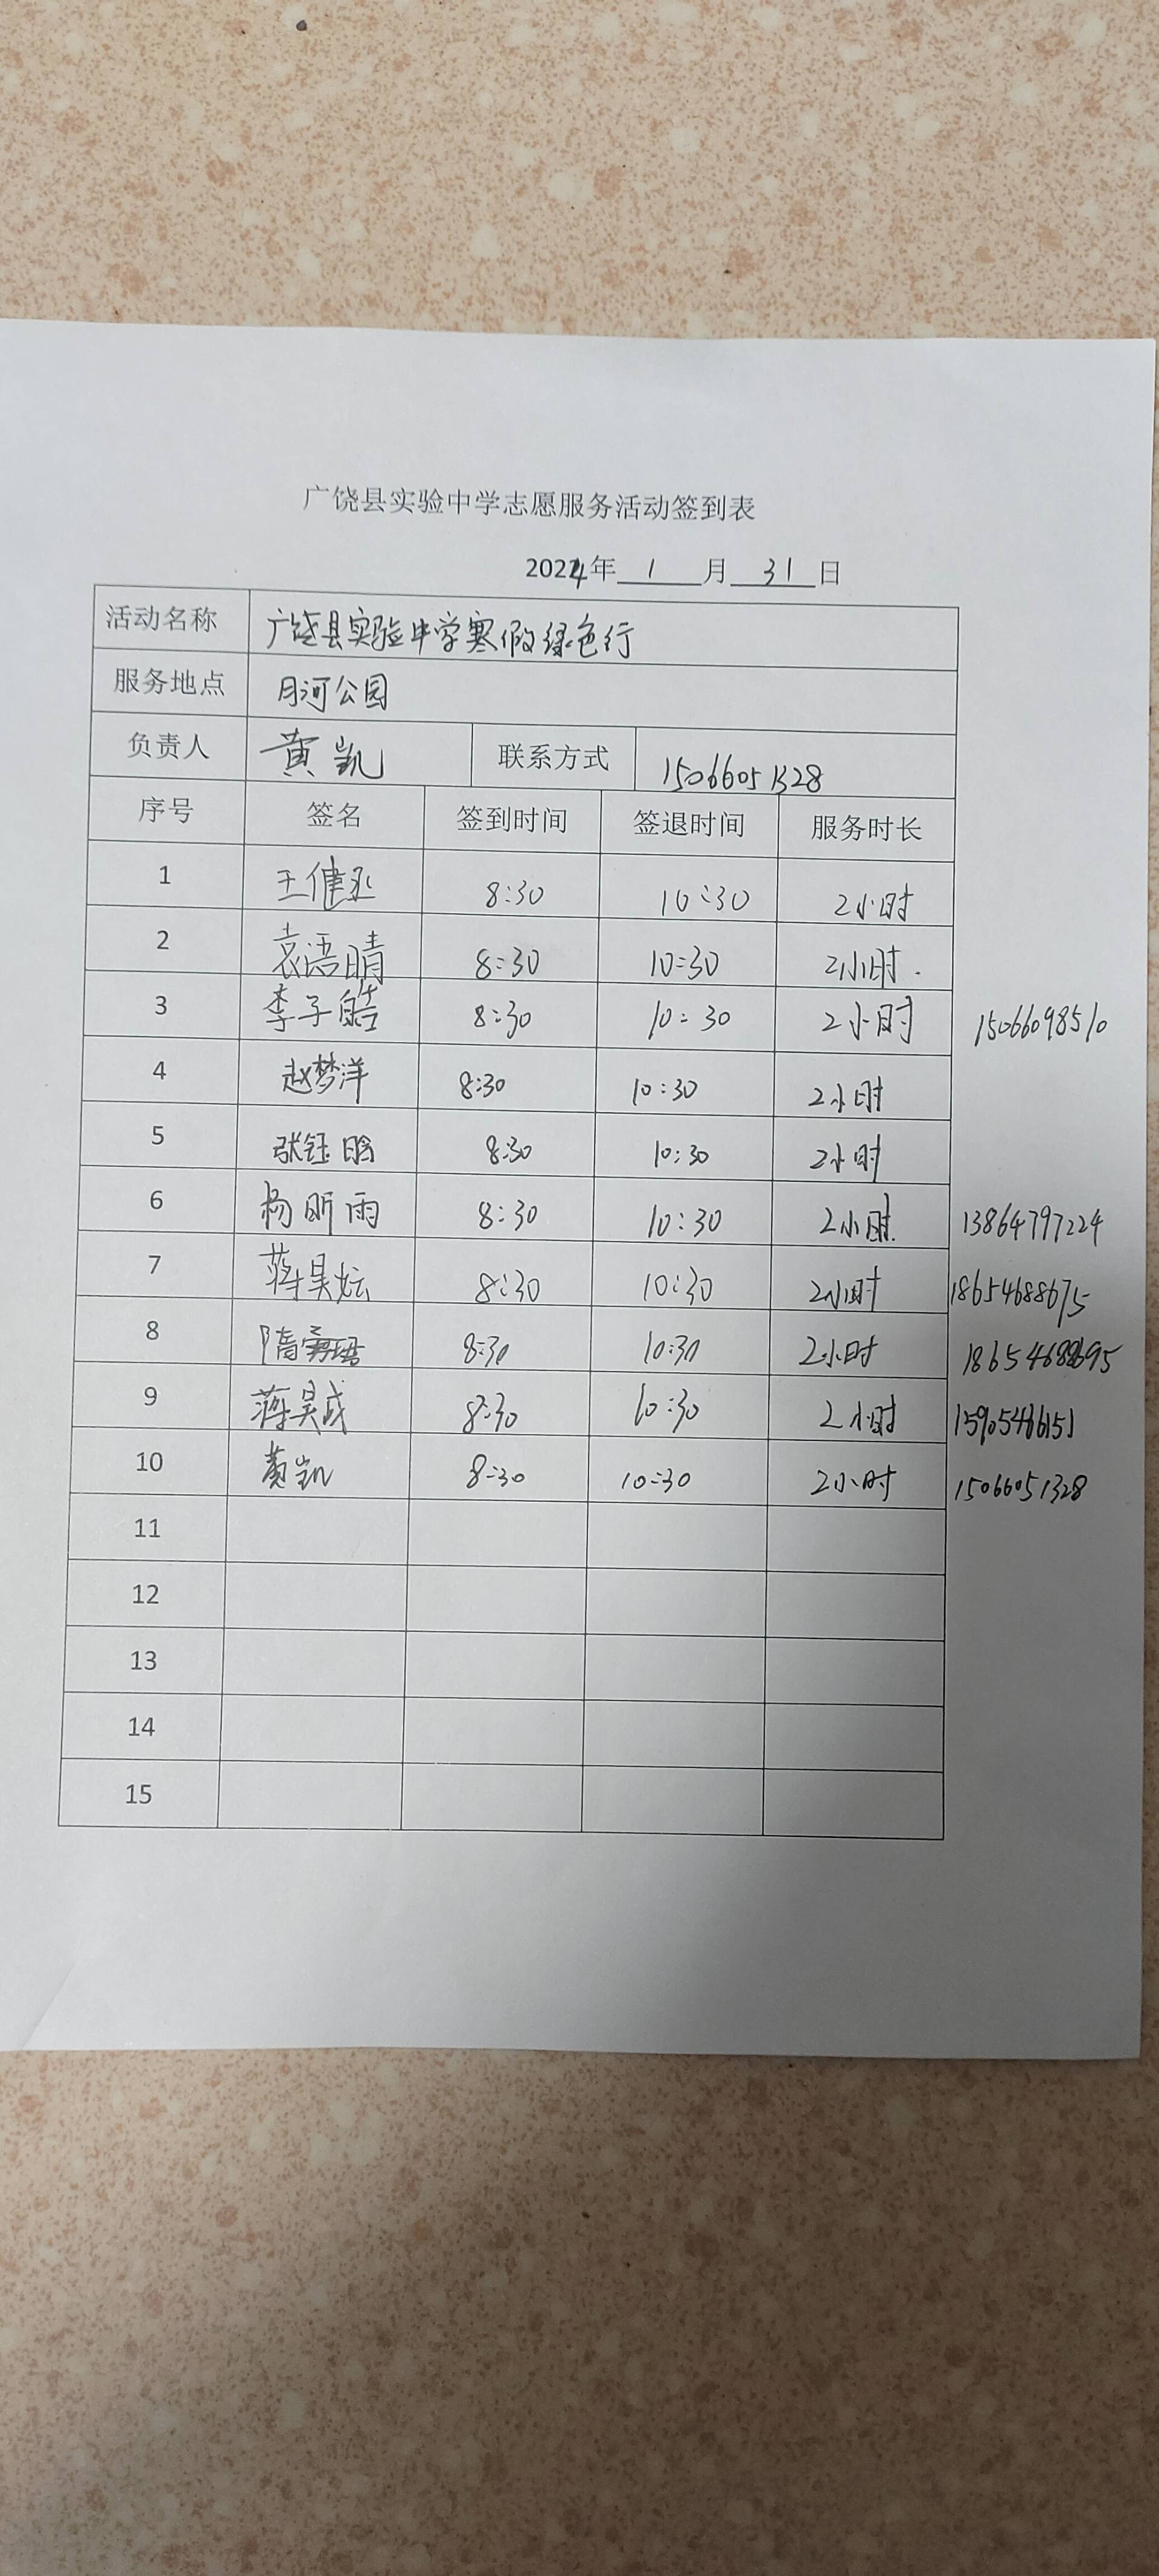 广饶县实验中学志愿服务活动签到表
2024年 1 月 31 日
活动名称 广饶县实验中学寒假绿色行
服务地点 月河公园
负责人 黄凯 联系方式 15066051328
序号 签名 签到时间 签退时间 服务时长
1 王健丞 8:30 10:30 2小时
2 袁语晴 8:30 10:30 2小时.
3 李子皓 8:30 10:30 2小时 15066098510
4 赵梦洋 8:30 10:30 2小时
5 张钰晗 8:30 10:30 2小时
6 杨昕雨 8:30 10:30 2小时 13864797224
7 蒋昊妘 8:30 10:30 2小时 18654688675
8 隋 8:30 10:30 2小时
9 蒋昊成 8:30 10:30 2小时
10 黄凯 8:30 10:30 2小时 15066051328
11
12
13
14
15